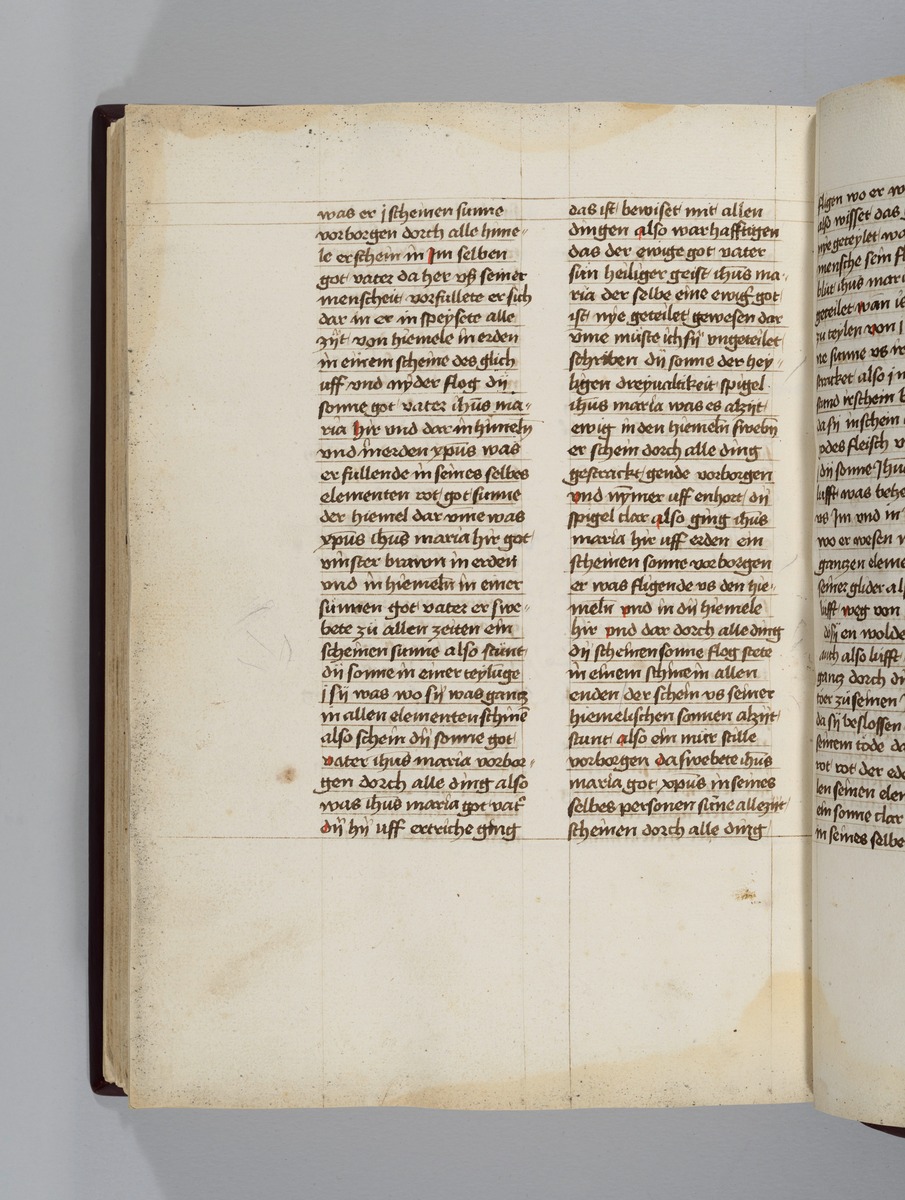 was er j scheinen sunne
vorborgen dorch alle hime-
le erschein in Im selben
got vater da her vß seiner
menscheit vorfullete er sich
dar in er in speysete alle
zijt von hiemele in erden
in einem scheine des glich
uff vnd nyder flog dij
sonne got vater ihūs ma-
ria hir vnd dar in himeln
vnd in erden xpūs was
er fullende in seines selbes
elementen rot got sunne
der hiemel dar vme was
xpūs ihus maria hir got
vinster brawn in erden
vnd in hiemeln in einer
sunnen got vater er swe-
bete zu allen zeiten ein
scheinen sunne also stunt
dij sonne in einer teylūge
j sij was wo sij was gantz
in allen elementen schinē
also schein dij sonne got
vater ihus maria vorbor-
gen dorch alle ding also
was ihus maria got vat
dij hij uff ertriche ging
das ist bewiset mit allen
dingen also warhafftigen
das der ewige got vater
sun heiliger geist ihūs ma-
ria der selbe eine ewig got
ist nye geteilet gewesen dar
vme muste ich sij vngeteilet
schriben dij sonne der hey-
ligen dreyualtikeit spigel
ihūs maria was es alzijt
ewig in den hiemeln swebn
er schein dorch alle ding
gestrackt gende vorborgen
vnd nymer uff enhort dij
spigel clar also ging ihūs
maria hir uff erden ein
scheinen sonne vorborgen
er was fligende vs den hie-
meln vnd in dij hiemele
hir vnd dar dorch alle ding
dij scheinen sonne flog stete
in einem schinein allen
enden der schein vs seiner
hiemelischen sonnen alzijt
stunt also ein mur stille
vorborgen da swebete ihūs
maria got xpūs in seines
selbes personen sūne allezijt
scheinen dorch alle ding
fligen wo er
also wisset das
nye geteylet
mensche sein
blut ihus
geteilet wan
zu teylen von j
ne sunne vs
stracket also j
stund erschein
da sij in schein
odes fleisch
dij sonne Ihus
lufft was
vs Im vnd in
wo er wesen
gantzen
seiner glider
lufft weg von
dij en wolde
auch also lufft
gantz dorch
ver zu seinen
da sij beslossen
seinem tode da
rot rot der
len seinen
ein sonne clar
in seines selbe